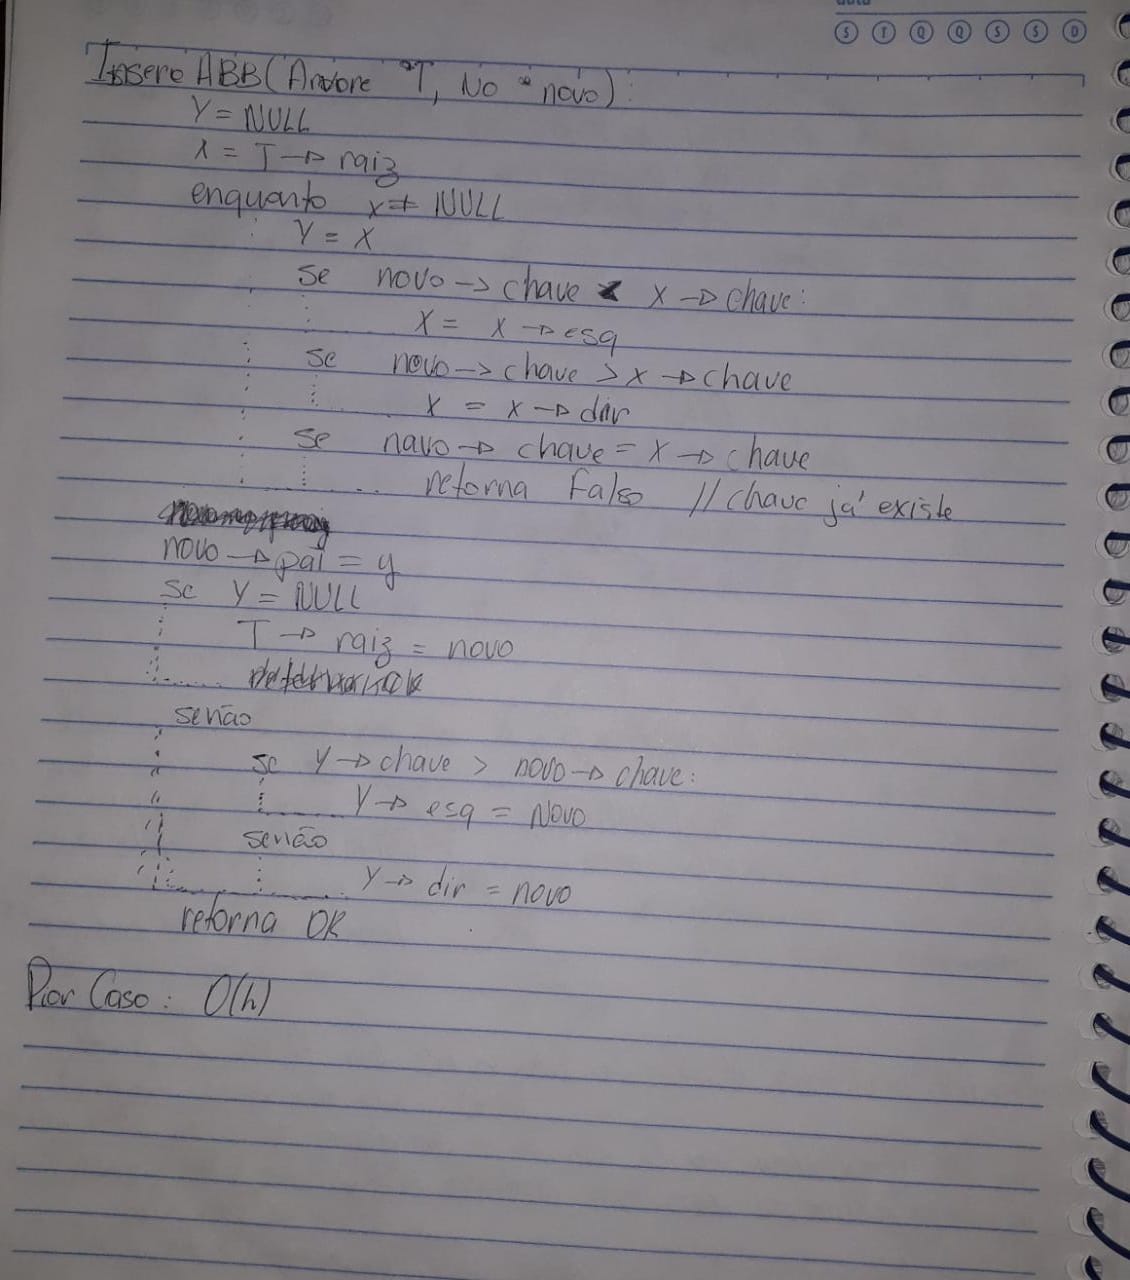 data
S T Q Q S S D
Insere ABB (Arvore *T, No * novo):
Y = NULL
X = T → raiz
enquanto x ≠ NULL
Y = X
se novo → chave < X → chave:
X = X → esq
se novo → chave > x → chave
X = x → dir
se novo → chave = X → chave
retorna Falso // chave já existe
novo → pai = y
se Y = NULL
T → raiz = novo
senão
se Y → chave > novo → chave:
Y → esq = Novo
senão
Y → dir = novo
retorna OK
Pior Caso: O(h)